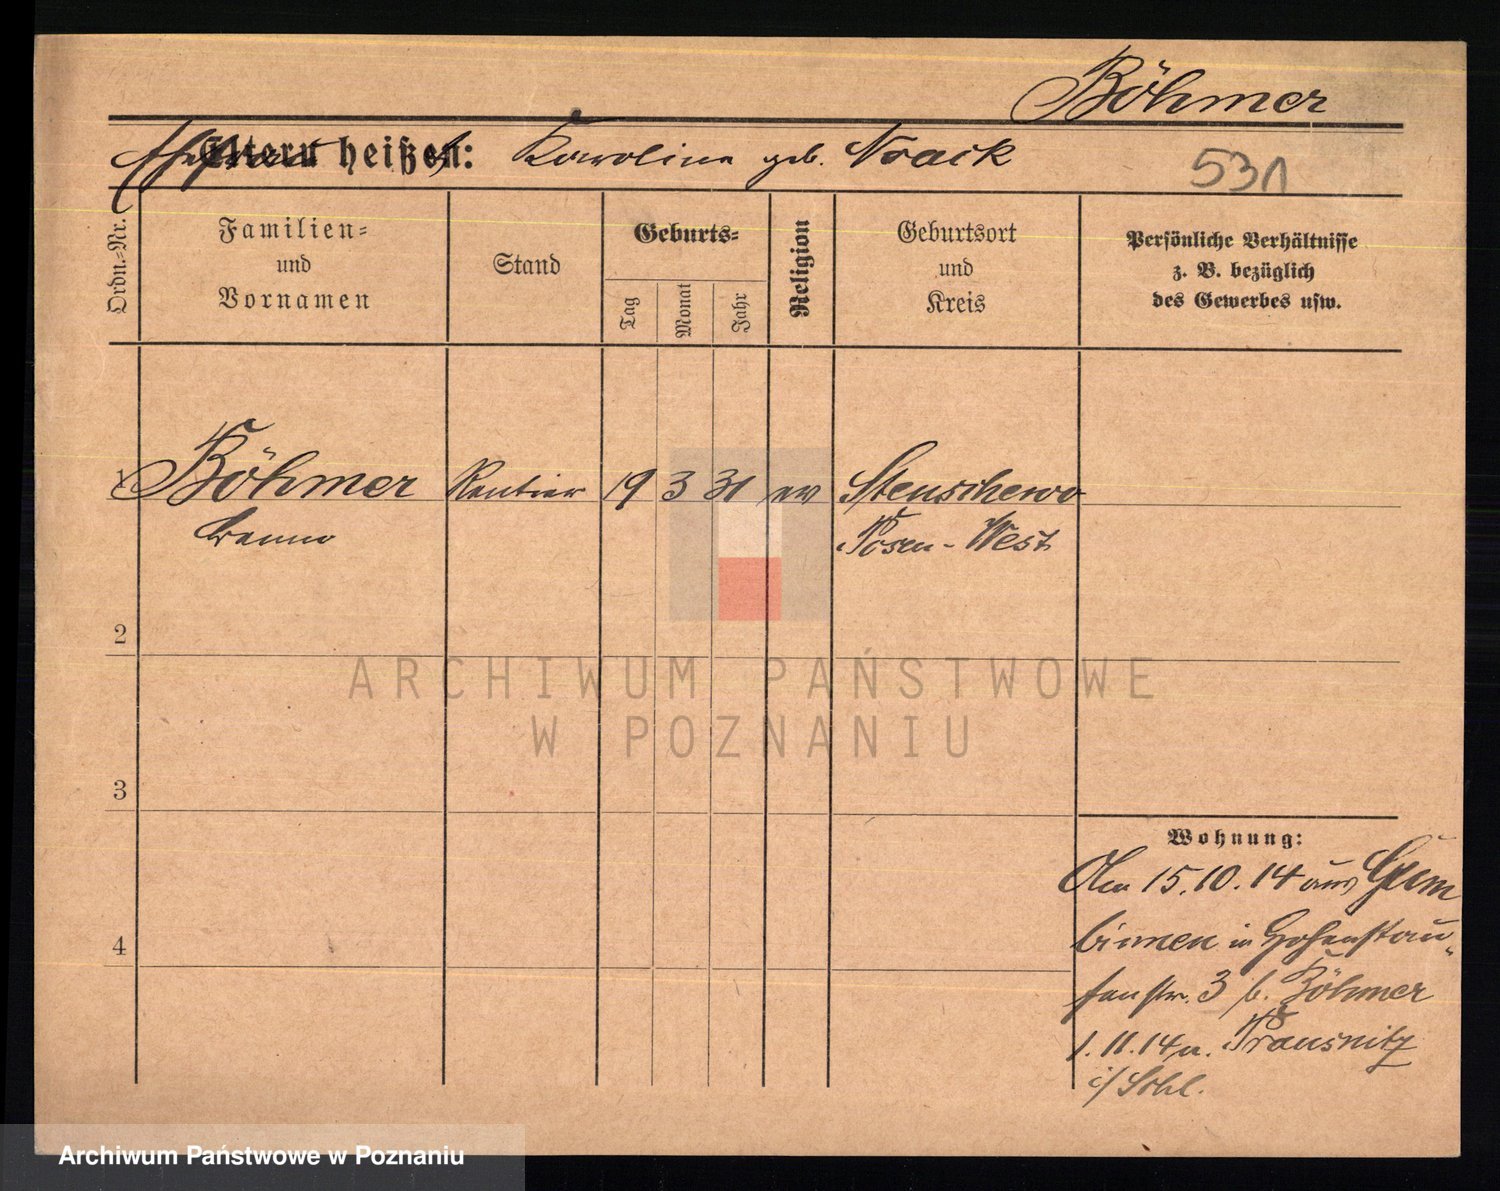 Böhmer
Ehefrau heißt: Karoline geb. Noack
531
Ordn.-Nr.
Familien-
und
Vornamen
Stand
Geburts-
Tag
Monat
Jahr
Religion
Geburtsort
und
Kreis
Persönliche Verhältnisse
z. B. bezüglich
des Gewerbes usw.
1 Böhmer Rentier 19 3 31 ev Stenschewo
Benno Posen-West
2
3
4
Wohnung:
Am 15.10.14 aus Gum
binnen in Hohenstau-
fenstr. 3 b. Böhmer
1.11.14 n. Prausnitz
i/Schl.
ARCHIWUM PAŃSTWOWE
W POZNANIU
Archiwum Państwowe w Poznaniu